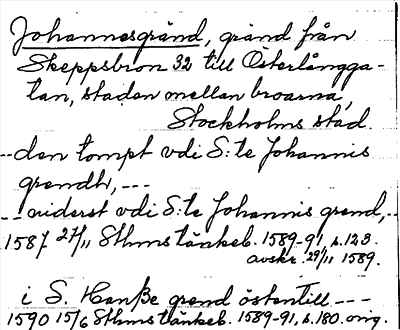 Johannesgränd, gränd från
Skeppsbron 32 till Österlångga-
tan, staden mellan broarna,
Stockholms stad.
--den tompt vdi S:te Johannis
grendh, ---
--niderst vdi S:te Johannis grend,--
1587 27/11 Sthms tänkeb. 1589-91, s. 123.
avskr. 29/11 1589.
i S. Hanße grend östentill ---
1590 15/6 Sthms tänkeb. 1589-91, s. 180. orig.